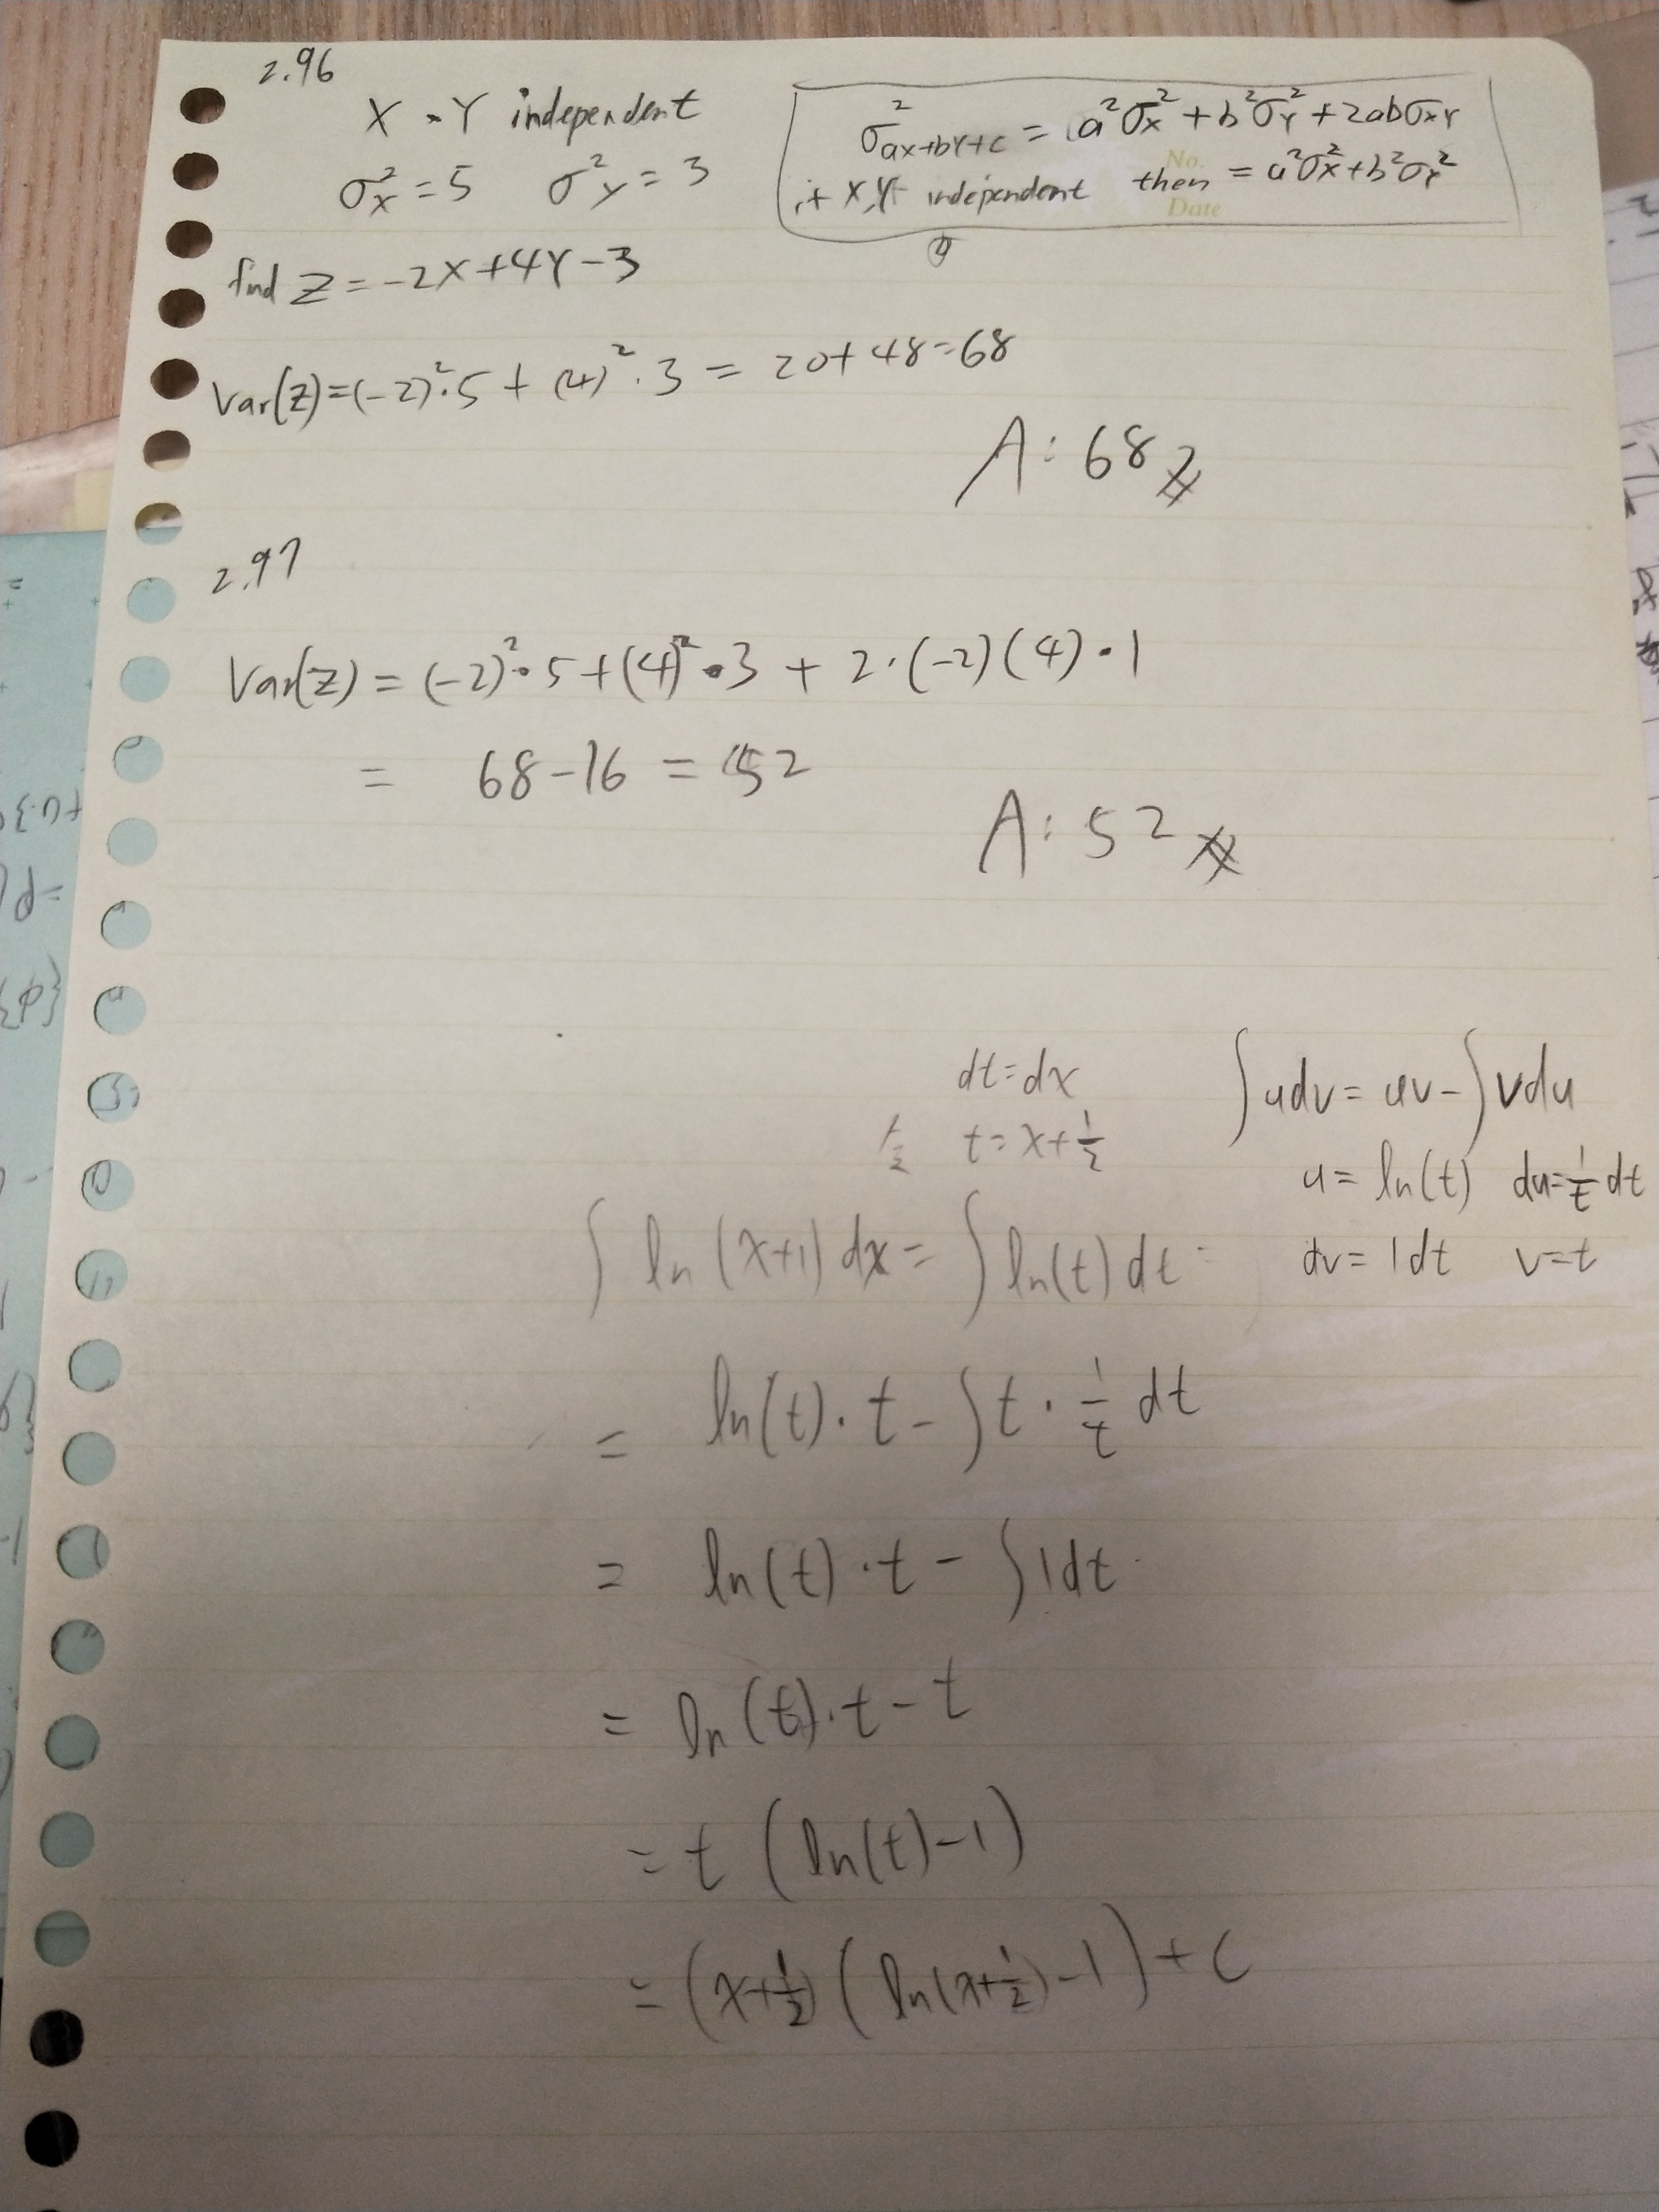 2.96
X、Y independent
σ²x = 5 σ²y = 3
σ²ax+bY+c = a²σx² + b²σY² + 2abσxY
if X,Y independent then = a²σx² + b²σY²
No.
Date
find Z = -2X + 4Y - 3
Var(Z) = (-2)²·5 + (4)²·3 = 20 + 48 = 68
A: 68
2.97
Var(Z) = (-2)²·5 + (4)²·3 + 2·(-2)(4)·1
= 68 - 16 = 52
A: 52
dt = dx
t = x + 1/2
∫udv = uv - ∫vdu
u = ln(t) du = 1/t dt
dv = 1dt v = t
∫ ln(x+1) dx = ∫ ln(t) dt
= ln(t)·t - ∫t·1/t dt
= ln(t)·t - ∫1dt
= ln(t)·t - t
= t (ln(t) - 1)
= (x + 1/2)(ln(x + 1/2) - 1) + C